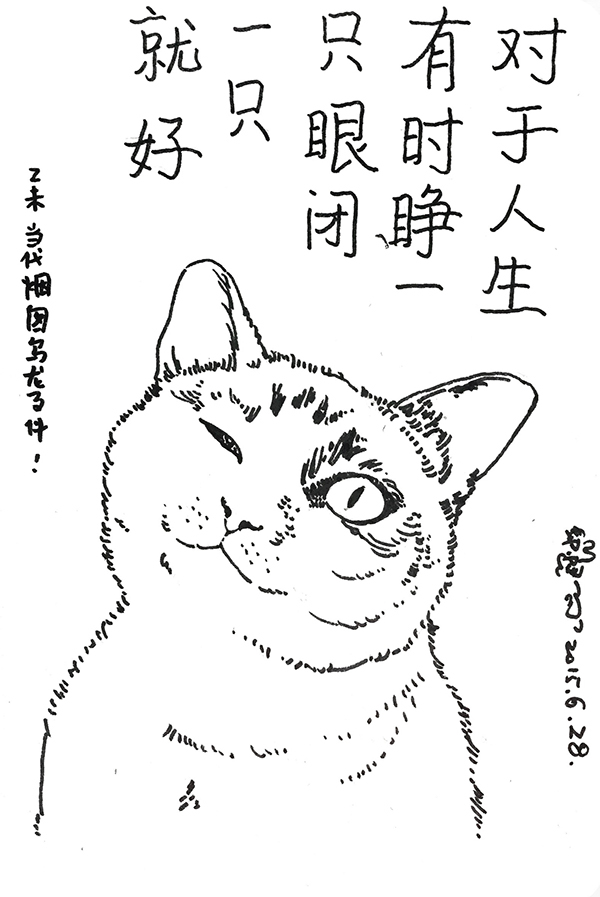 对于人生
有时睁一
只眼闭
一只
就好
乙未 当代烟囱乌龙事件！
2015.6.28.